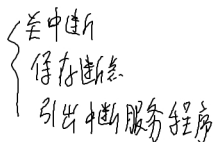 关中断
保存断点
引出中断服务程序